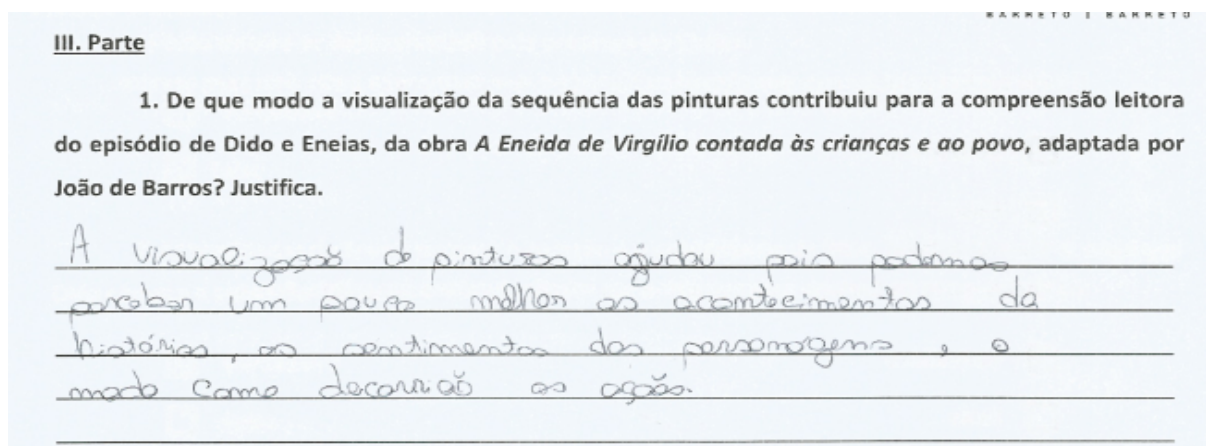 BARRETO | BARRETO
III. Parte
1. De que modo a visualização da sequência das pinturas contribuiu para a compreensão leitora
do episódio de Dido e Eneias, da obra A Eneida de Virgílio contada às crianças e ao povo, adaptada por
João de Barros? Justifica.
A visualização de pinturas ajudou pois podemos
perceber um pouco melhor os acontecimentos da
história, os sentimentos das personagens, o
modo como decorrião as ação.